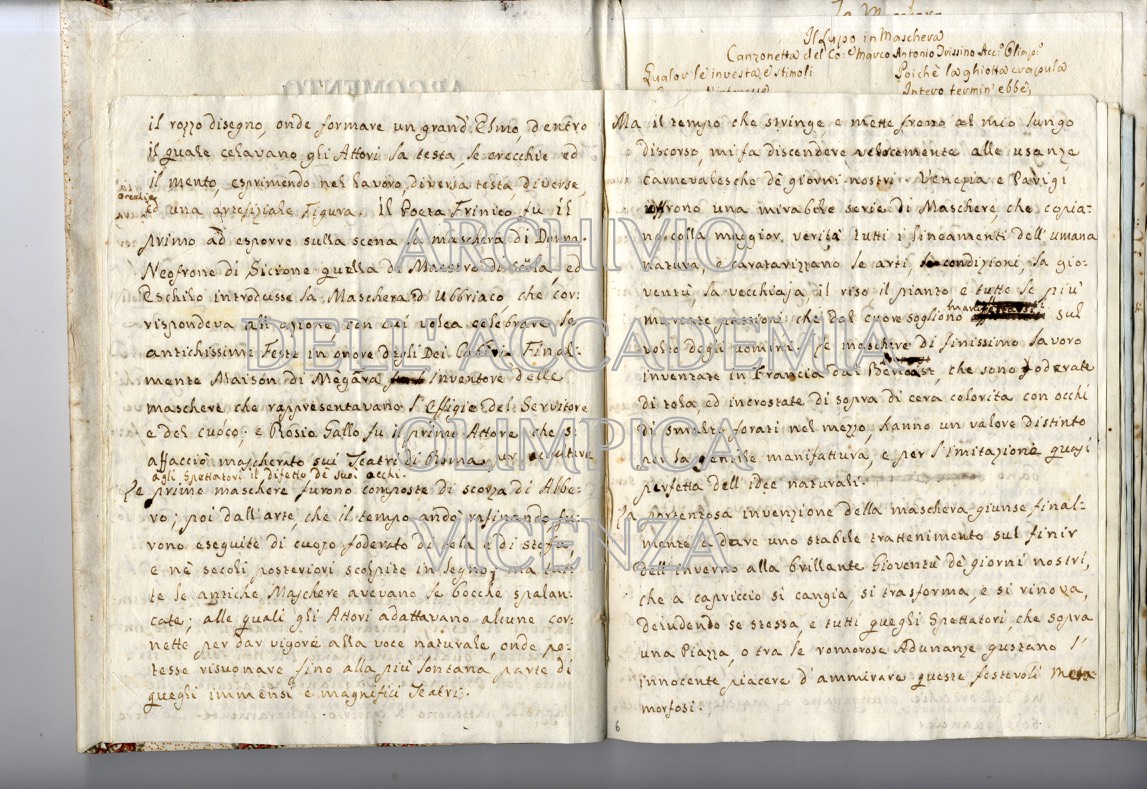 Il Lupo in Maschera
Canzonetta del Co: Marco Antonio Trissino Acc.º Olimp.º
Qualor le investa e stimoli
Poichè la ghiotta crapula
Intero termin' ebbe,
ARGOMENTO
il rozzo disegno, onde formare un grand' Elmo, dentro
il quale celavano gli Attori la testa, le orecchie ed
il mento, esprimendo nel lavoro, diversa testa, diverse,
ed una artefiziale Figura. Il Poeta Frinico fu il
primo ad esporre sulla scena la maschera di Donna.
Neofrone di Sicione quella di Maestro di scola, ed
Eschilo introdusse la Maschera d' Ubbriaco che cor-
rispondeva all' azione, con cui volea celebrare le
antichissime Feste in onore degli Dei Cabiri. Final-
mente Maison di Mègara inventore delle
maschere che rappresentavano l' effigie del Servitore
e del cuoco; e Rosio Gallo fu il primo Attore che s'
affacciò mascherato sui Teatri di Roma
agli spettatori il difetto de' suoi occhi.
Le prime maschere furono composte di scorza di Albe-
ro; poi dall' arte, che il tempo andò rafinando fu-
rono eseguite di cuojo foderato di tela e di stoffa,
e nè secoli posteriori scolpite in legno; ma tut-
te le antiche Maschere avevano le bocche spalan-
cate; alle quali gli Attori adattavano alcune cor-
nette per dar vigore alla voce naturale, onde po-
tesse risuonare fino alla più lontana parte di
quegli immensi e magnifici Teatri.
Ma il tempo che stringe, e mette freno al mio lungo
discorso, mi fa discendere velocemente alle usanze
Carnevalesche dè giorni nostri. Venezia e Parigi
offrono una mirabile serie di Maschere, che copia-
no colla maggior verità tutti i lineamenti dell' umana
natura, e caratarizzano le arti, le condizioni, la gio-
ventù, la vecchiaja, il riso il pianto e tutte le più
marcate passioni che dal cuore sogliono manifestarsi sul
volto degli uomini. Le maschere di finissimo lavoro
inventate in Francia dai Benoist, che sono foderate
di tola, ed incrostate di sopra di cera colorita con occhi
di smalto forati nel mezzo, hanno un valore distinto
per la gentile manifattura, e per l' imitazione quasi
perfetta dell' idee naturali.
La portentosa invenzione della maschera giunse final-
mente a dare uno stabile trattenimento sul finir
dell' inverno alla brillante Gioventù dè giorni nostri,
che a capriccio si cangia, si trasforma, e si rinova,
deludendo se stessa, e tutti quegli Spettatori, che sopra
una Piazza, o tra le romorose Adunanze gustano l'
innocente piacere d' ammirare queste festevoli Meta-
morfosi.
6
ARCHIVIO
DELL'ACCADEMIA
OLIMPICA
VICENZA